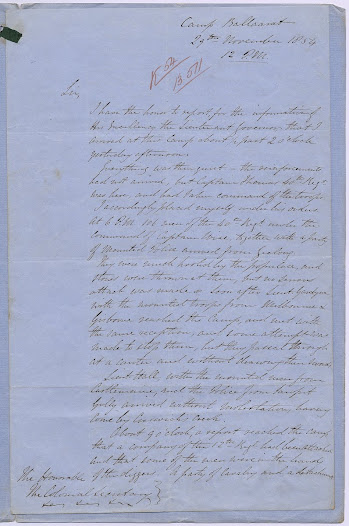 Camp Ballaarat
29th November 1854
12 P.M.
Sir,
I have the honor to report for the information of
His Excellency the Lieutenant Governor that I
arrived at this Camp about ½ past 2 o'clock
yesterday afternoon.
Everything was then quiet – the reinforcements
had not arrived, but Captain Thomas 40th Regt
was here, and had taken command of the troops
I accordingly placed myself under his orders
at 6 P.M. men of the 40th Regt under the
Command of Captain Wise, together with a party
of Mounted Police arrived from Geelong
They were much hooted by the populace, and
stones were thrown at them, but no serious
attack was made. Soon after Lieut
with the mounted troops from Melbourne &
reached the Camp, and met with
the same reception, and some attempts were
made to stop them, but they passed through
at a canter and without drawing their swords
Lieut Hall, with the mounted men from
Castlemaine, and the Police from
Gully arrived without molestation, having
come by Creswick's Creek.
About 9 o'clock, a report reached the camp
that a company of the 12th Regt had been attacked
and that some of the men were in the hands
of the diggers. A party of cavalry and a detachment
The Honorable
The Colonial Secretary